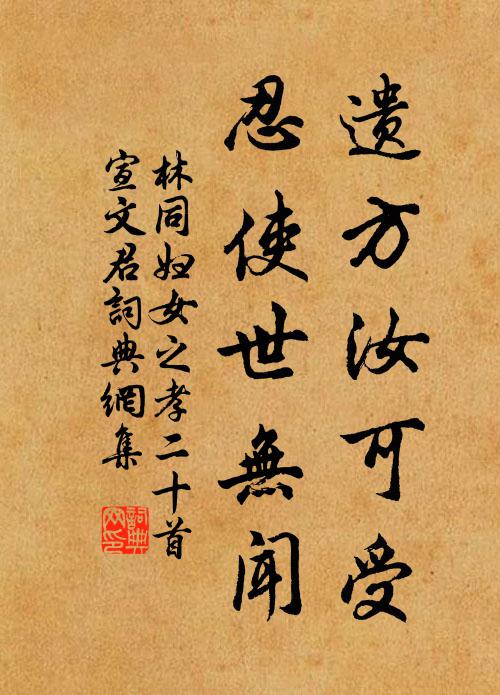 遺方汝可受
忍使世無聞
林同婦女之孝二十首
宣文君詞典網集
詞典網印